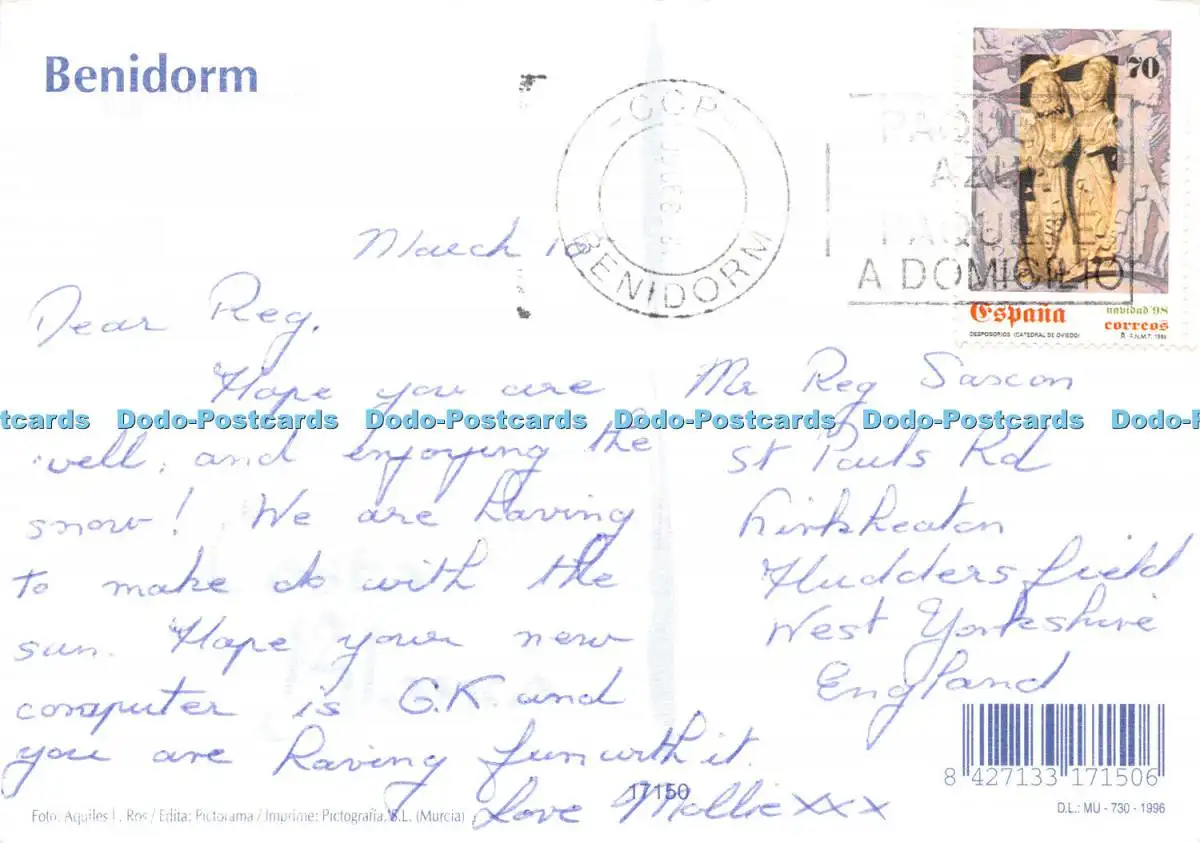 Benidorm
CCP
BENIDORM
PAQUETE
AZUL
PAQUETE
A DOMICILIO
70
España
navidad '98
correos
DESPOSORIOS (CATEDRAL DE OVIEDO)
F.N.M.T. 1998
March 16
Dear Reg.
Hope you are
well, and enjoying the
snow! We are having
to make do with the
sun. Hope your new
computer is O.K. and
you are having fun with it.
Love Mollie xxx
Mr Reg Saxon
St Pauls Rd
Kirkheaton
Huddersfield
West Yorkshire
England
Dodo-Postcards Dodo-Postcards Dodo-Postcards Dodo-Postcards Dodo-Postcards
17150
8 427133 171506
D.L.: MU - 730 - 1996
Foto: Aquiles L. Ros / Edita: Pictorama / Imprime: Pictografía, S.L. (Murcia)